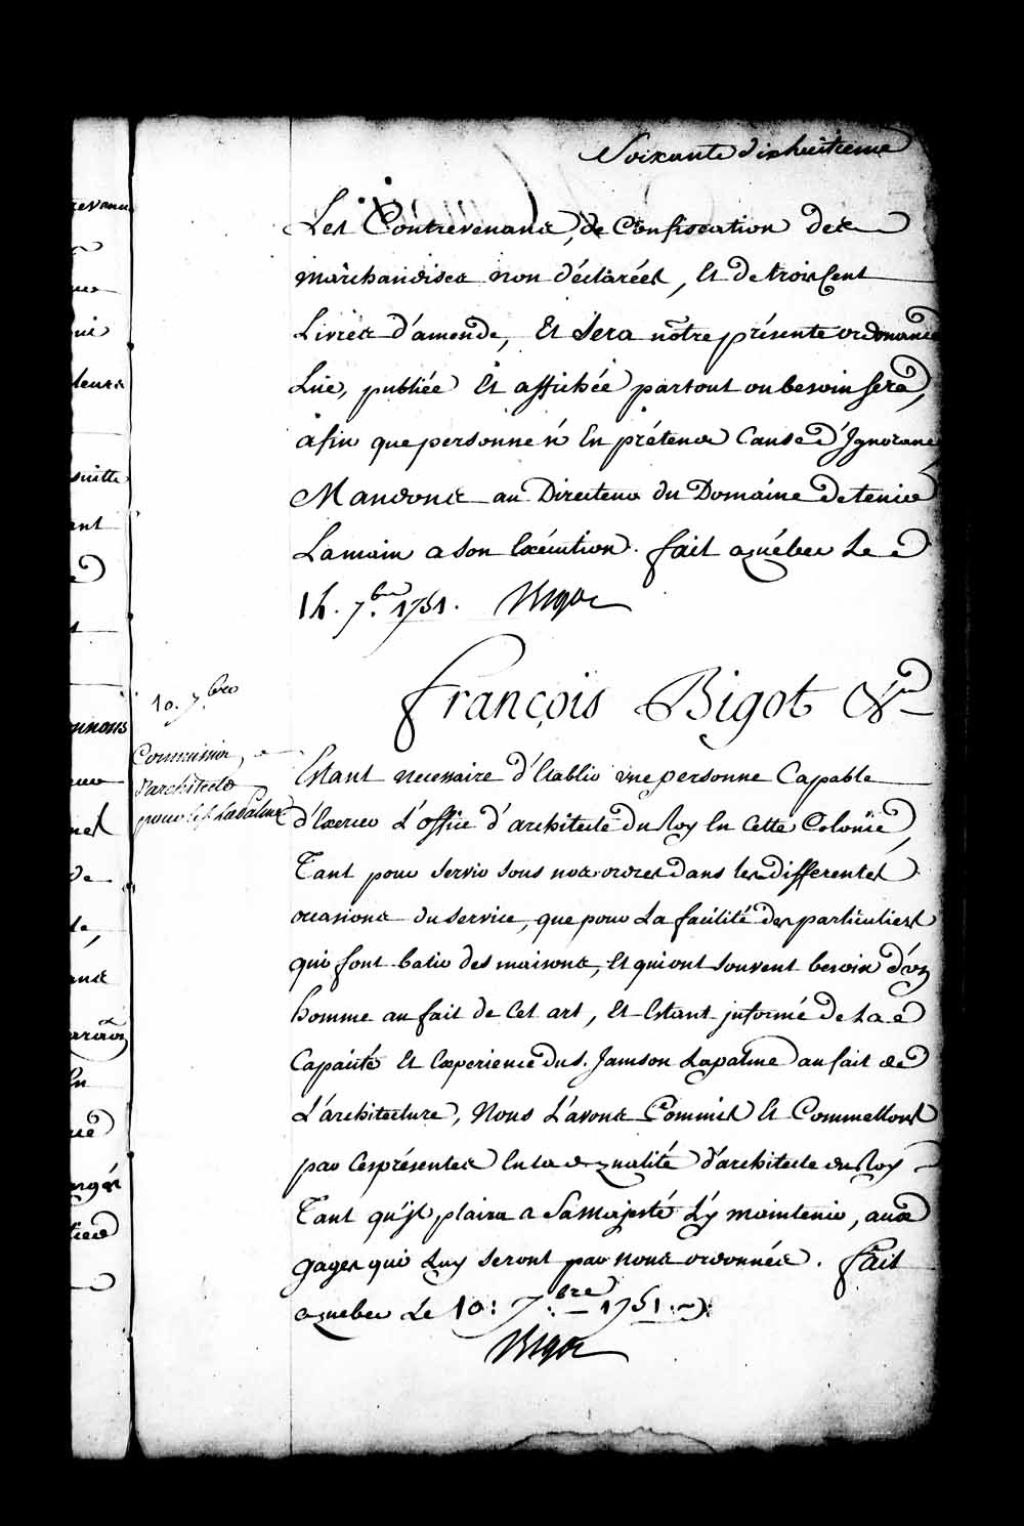 Soixante dixhuitieme
Les Contrevenans, de Confiscation des
marchandises non déclarées, Et de trois Cent
Livres d'amende, Et sera notre présente ordonnance
Lüe, publiée Et affichée partout ou besoin sera,
afin que personne n'En prétende Cause d'Ignorance
Mandons au Directeur du Domaine de tenir
La main a son Exécution. fait a québec Le
1h. 7.bre 1751. Bigot
François Bigot &ca
10. 7.bre
Commission,
d'architecte
pour le s. Lapalme
Estant necessaire d'Etablir une personne Capable
d'Exercer L'office d'architecte du Roy En Cette Colonie,
Tant pour servir sous nos ordres dans les differentes
occasions du service, que pour La facilité des particuliers
qui font batir des maisons, Et qui ont souvent besoin d'un
homme au fait de Cet art, Et Estant informé de La
Capacité Et Experience du s. Janson Lapalme au fait de
L'architecture, Nous L'avons Commis Et Commettons
par Ces présentes En la qualité d'architecte du Roy
Tant qu'il plaira a Sa Majesté L'y maintenir, aux
gages qui Luy seront par nous ordonnés. Fait
a quebec Le 10: 7.bre 1751.
Bigot
tevenans
leurs
suitte
ant
onnons
de
te,
En